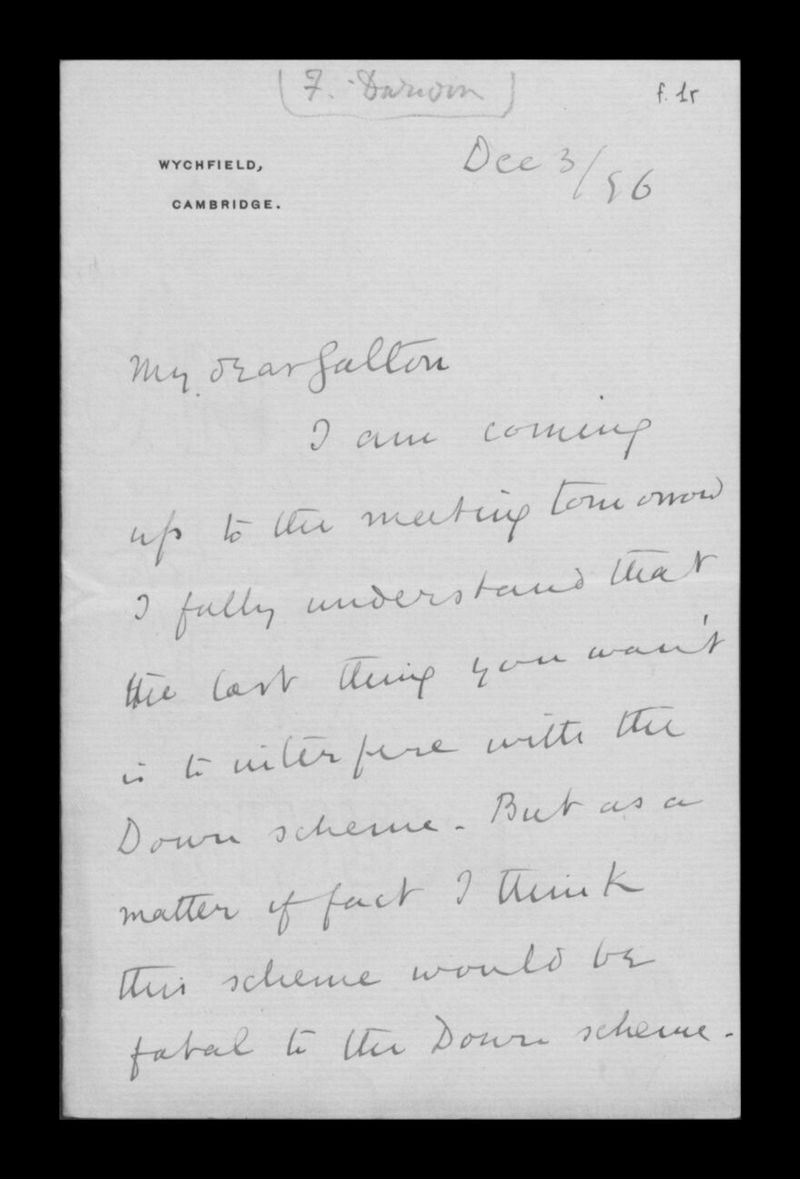 (F. Darwin)
f. 1r
WYCHFIELD,
CAMBRIDGE.
Dec 3/96
My dear Galton
I am coming
up to the meeting tomorrow
I fully understand that
the last thing you want
is to interfere with the
Down scheme. But as a
matter of fact I think
this scheme would be
fatal to the Down scheme.